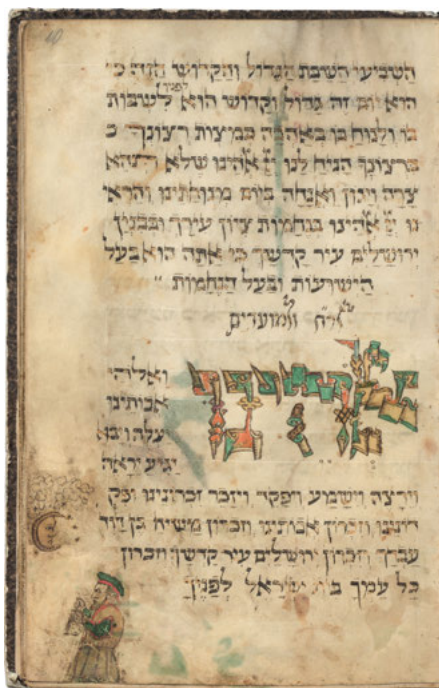 השביעי השבת הגדול והקדוש הזה כי
לפניך
הוא יום זה גדול וקדוש הוא לשבות
בו ולנוח בו באהבה כמצות רצונך
ברצונך הניח לנו יי אלהינו שלא תהא
צרה ויגון ואנחה ביום מנוחתינו והראי
נו יי אלהינו בנחמות ציון עירך ובבנין
ירושלים עיר קדשך כי אתה הוא בעל
הישועות ובעל הנחמות
ומועדים
אלהינו
ואלוהי
אבותינו
יעלה ויבא
יגיע יראה
וירצה וישמע ויפקד ויזכר זכרונינו ופק
דונינו וזכרון אבותינו וזכרון משיח בן דוד
עבדך וזכרון ירושלים עיר קדשך וזכרון
כל עמך בית ישראל לפניך